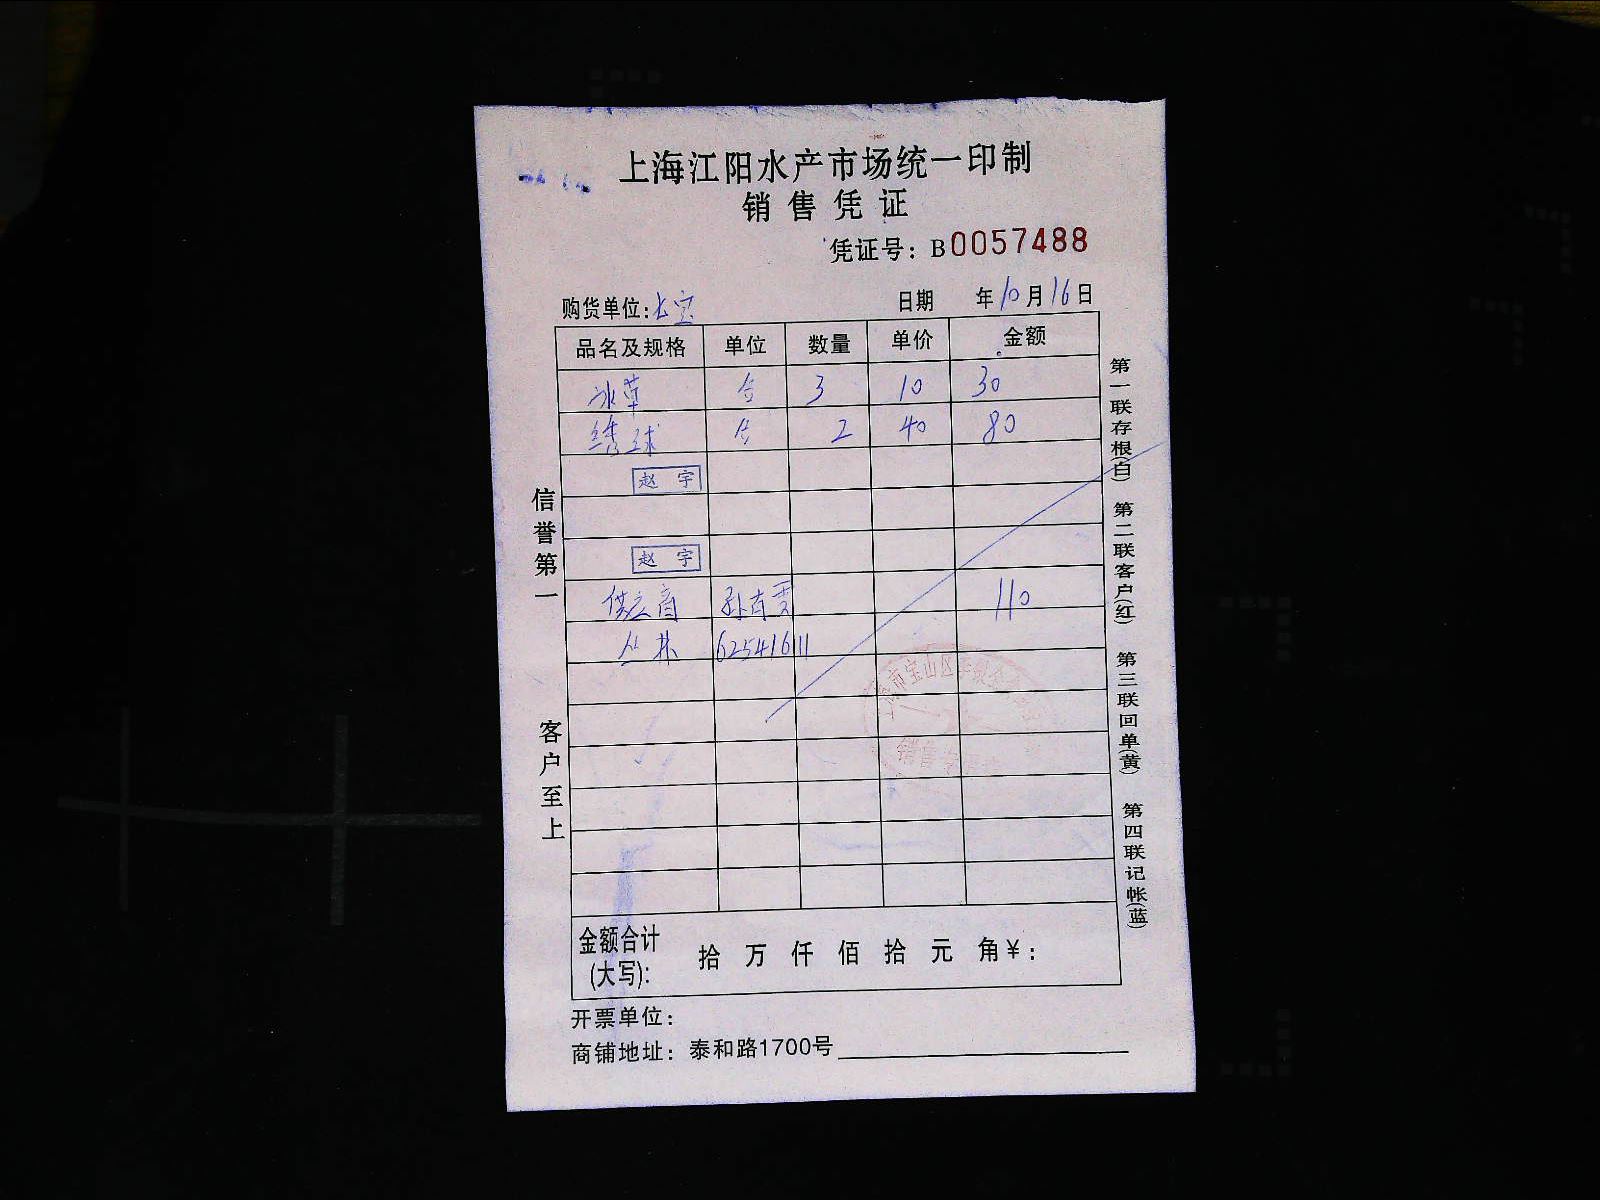 上海江阳水产市场统一印制
销售凭证
凭证号：B0057488
购货单位：长宝
日期 年10月16日
品名及规格 单位 数量 单价 金额
冰草 3 10 30
绣球 2 40 80
赵 宇
赵 宇
供应商 110
丛林 62541611
金额合计 拾 万 仟 佰 拾 元 角￥：
(大写)：
开票单位：
商铺地址：泰和路1700号
信誉第一
客户至上
第一联存根(白) 第二联客户(红) 第三联回单(黄) 第四联记帐(蓝)
市宝山区
销售